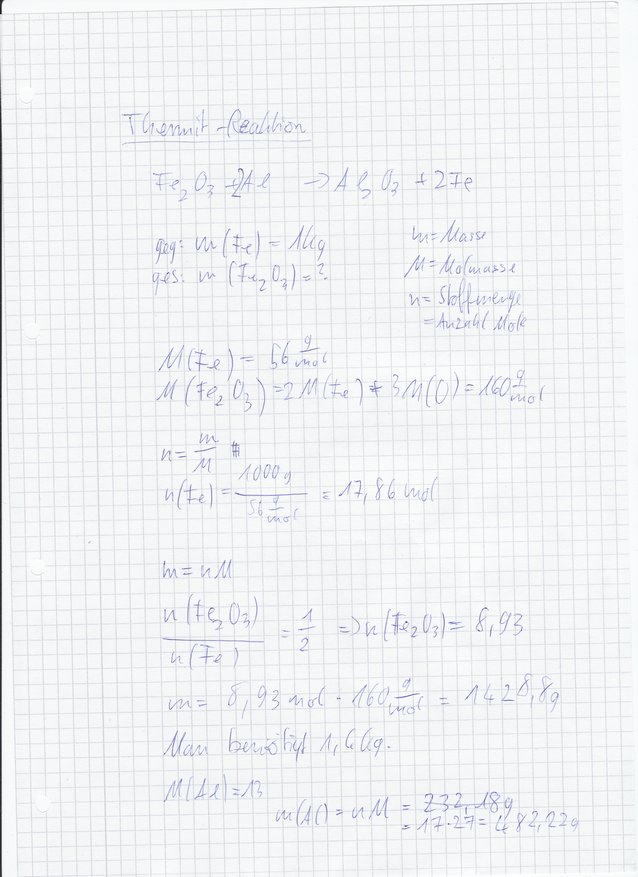 Thermit-Reaktion
Fe₂O₃ + 2Al → Al₂O₃ + 2Fe
geg: m(Fe) = 1kg
ges: m(Fe₂O₃) = ?
m = Masse
M = Molmasse
n = Stoffmenge
= Anzahl Mole
M(Fe) = 56 g/mol
M(Fe₂O₃) = 2M(Fe) + 3M(O) = 160 g/mol
n = m/M
n(Fe) = 1000g / 56 g/mol = 17,86 mol
m = nM
n(Fe₂O₃)/n(Fe) = 1/2 ⇒ n(Fe₂O₃) = 8,93
m = 8,93 mol · 160 g/mol = 1428,8g
Man benötigt 1,4kg.
M(Al) = 13
m(Al) = nM = 232,18g
= 17·27 = 482,22g